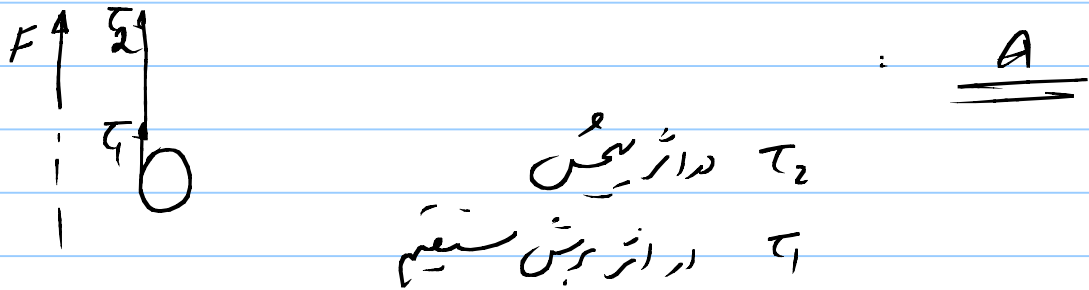 A :
F τ2
τ1
τ2 در اثر پیچش
τ1 در اثر برش مستقیم